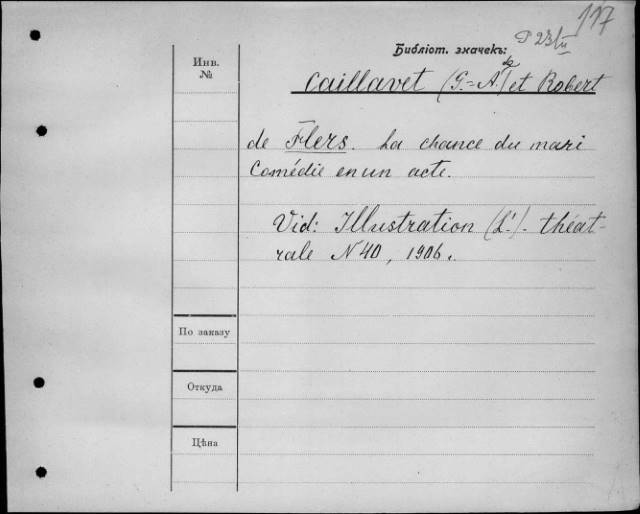 117
P 23/II
Библіот. значекъ:
Инв.
№
Caillavet (G.=A. de) et Robert
de Flers. La chance du mari
Comédie en un acte.
Vid: Illustration (L'). théat-
rale N 40, 1906.
По заказу
Откуда
Цѣна